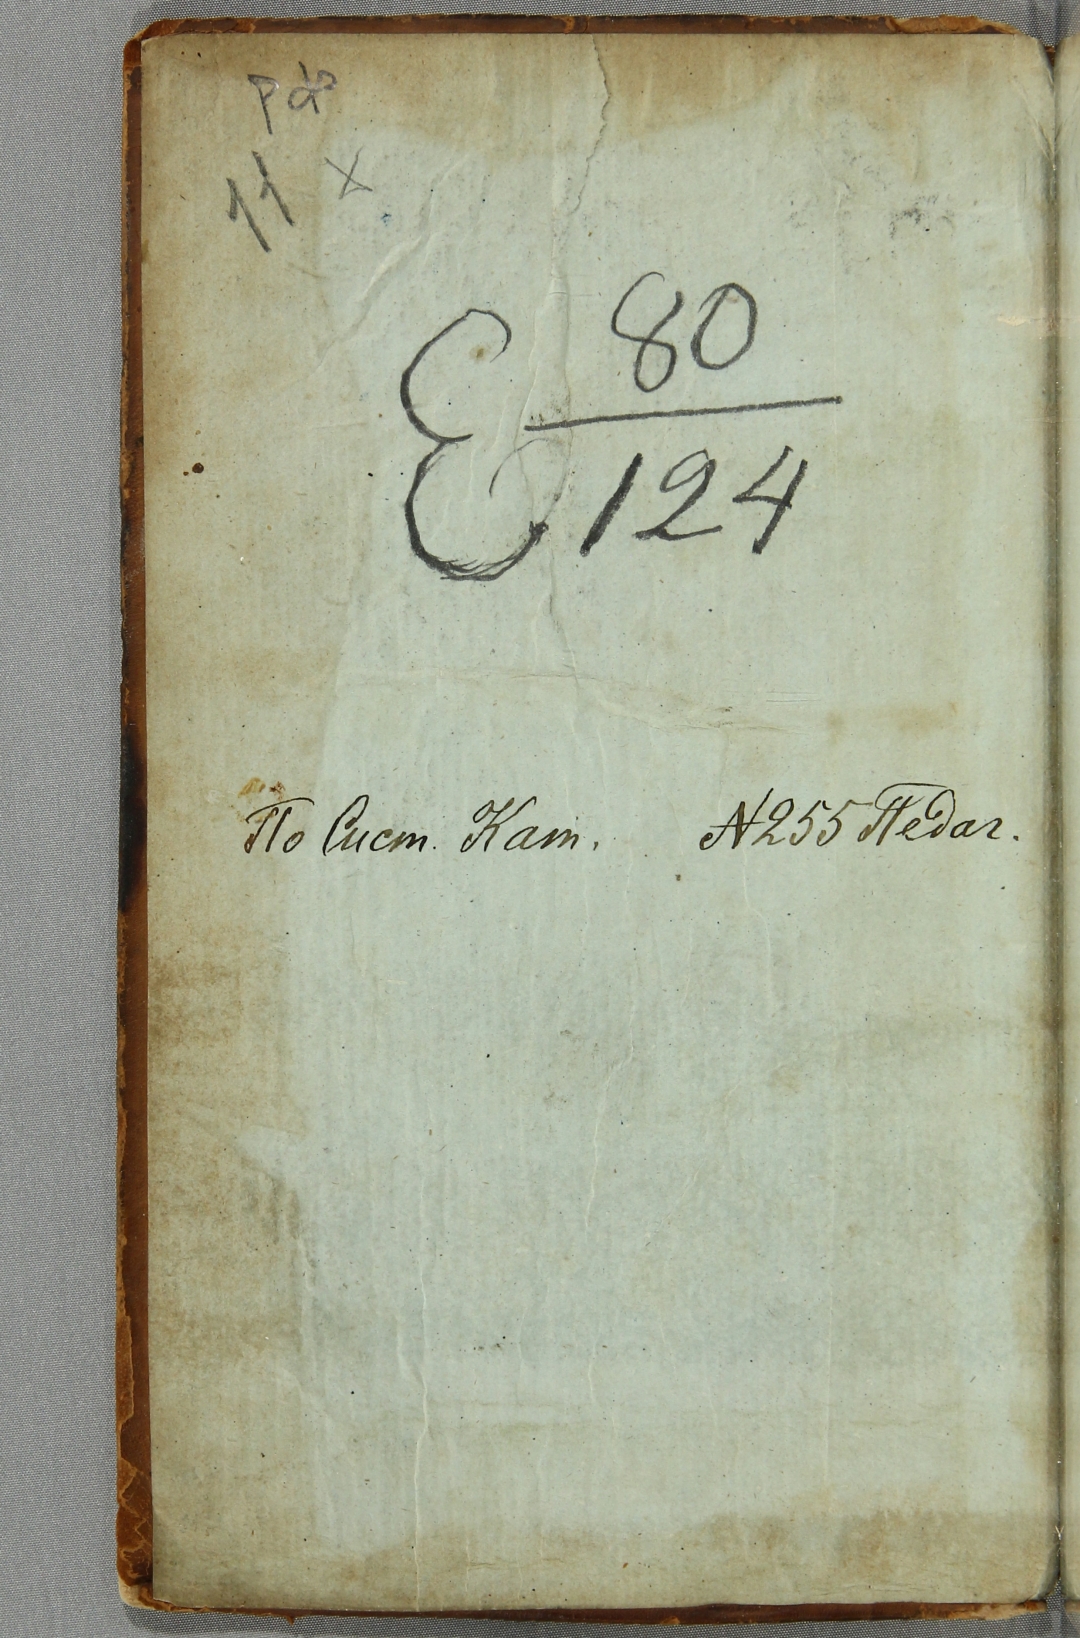 рф
11 x
Е 80
124
По Сист. Кат. №255 Педаг.